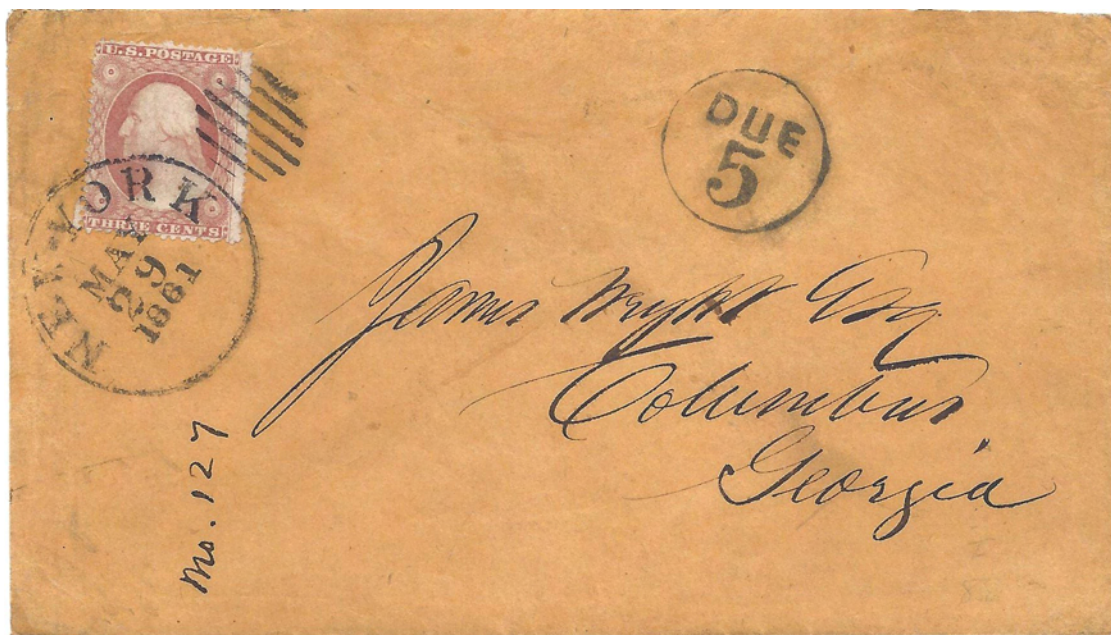 U.S. POSTAGE
THREE CENTS
NEW-YORK
MAY
29
1861
DUE
5
James Wright Esq
Columbus,
Georgia
Mo. 127